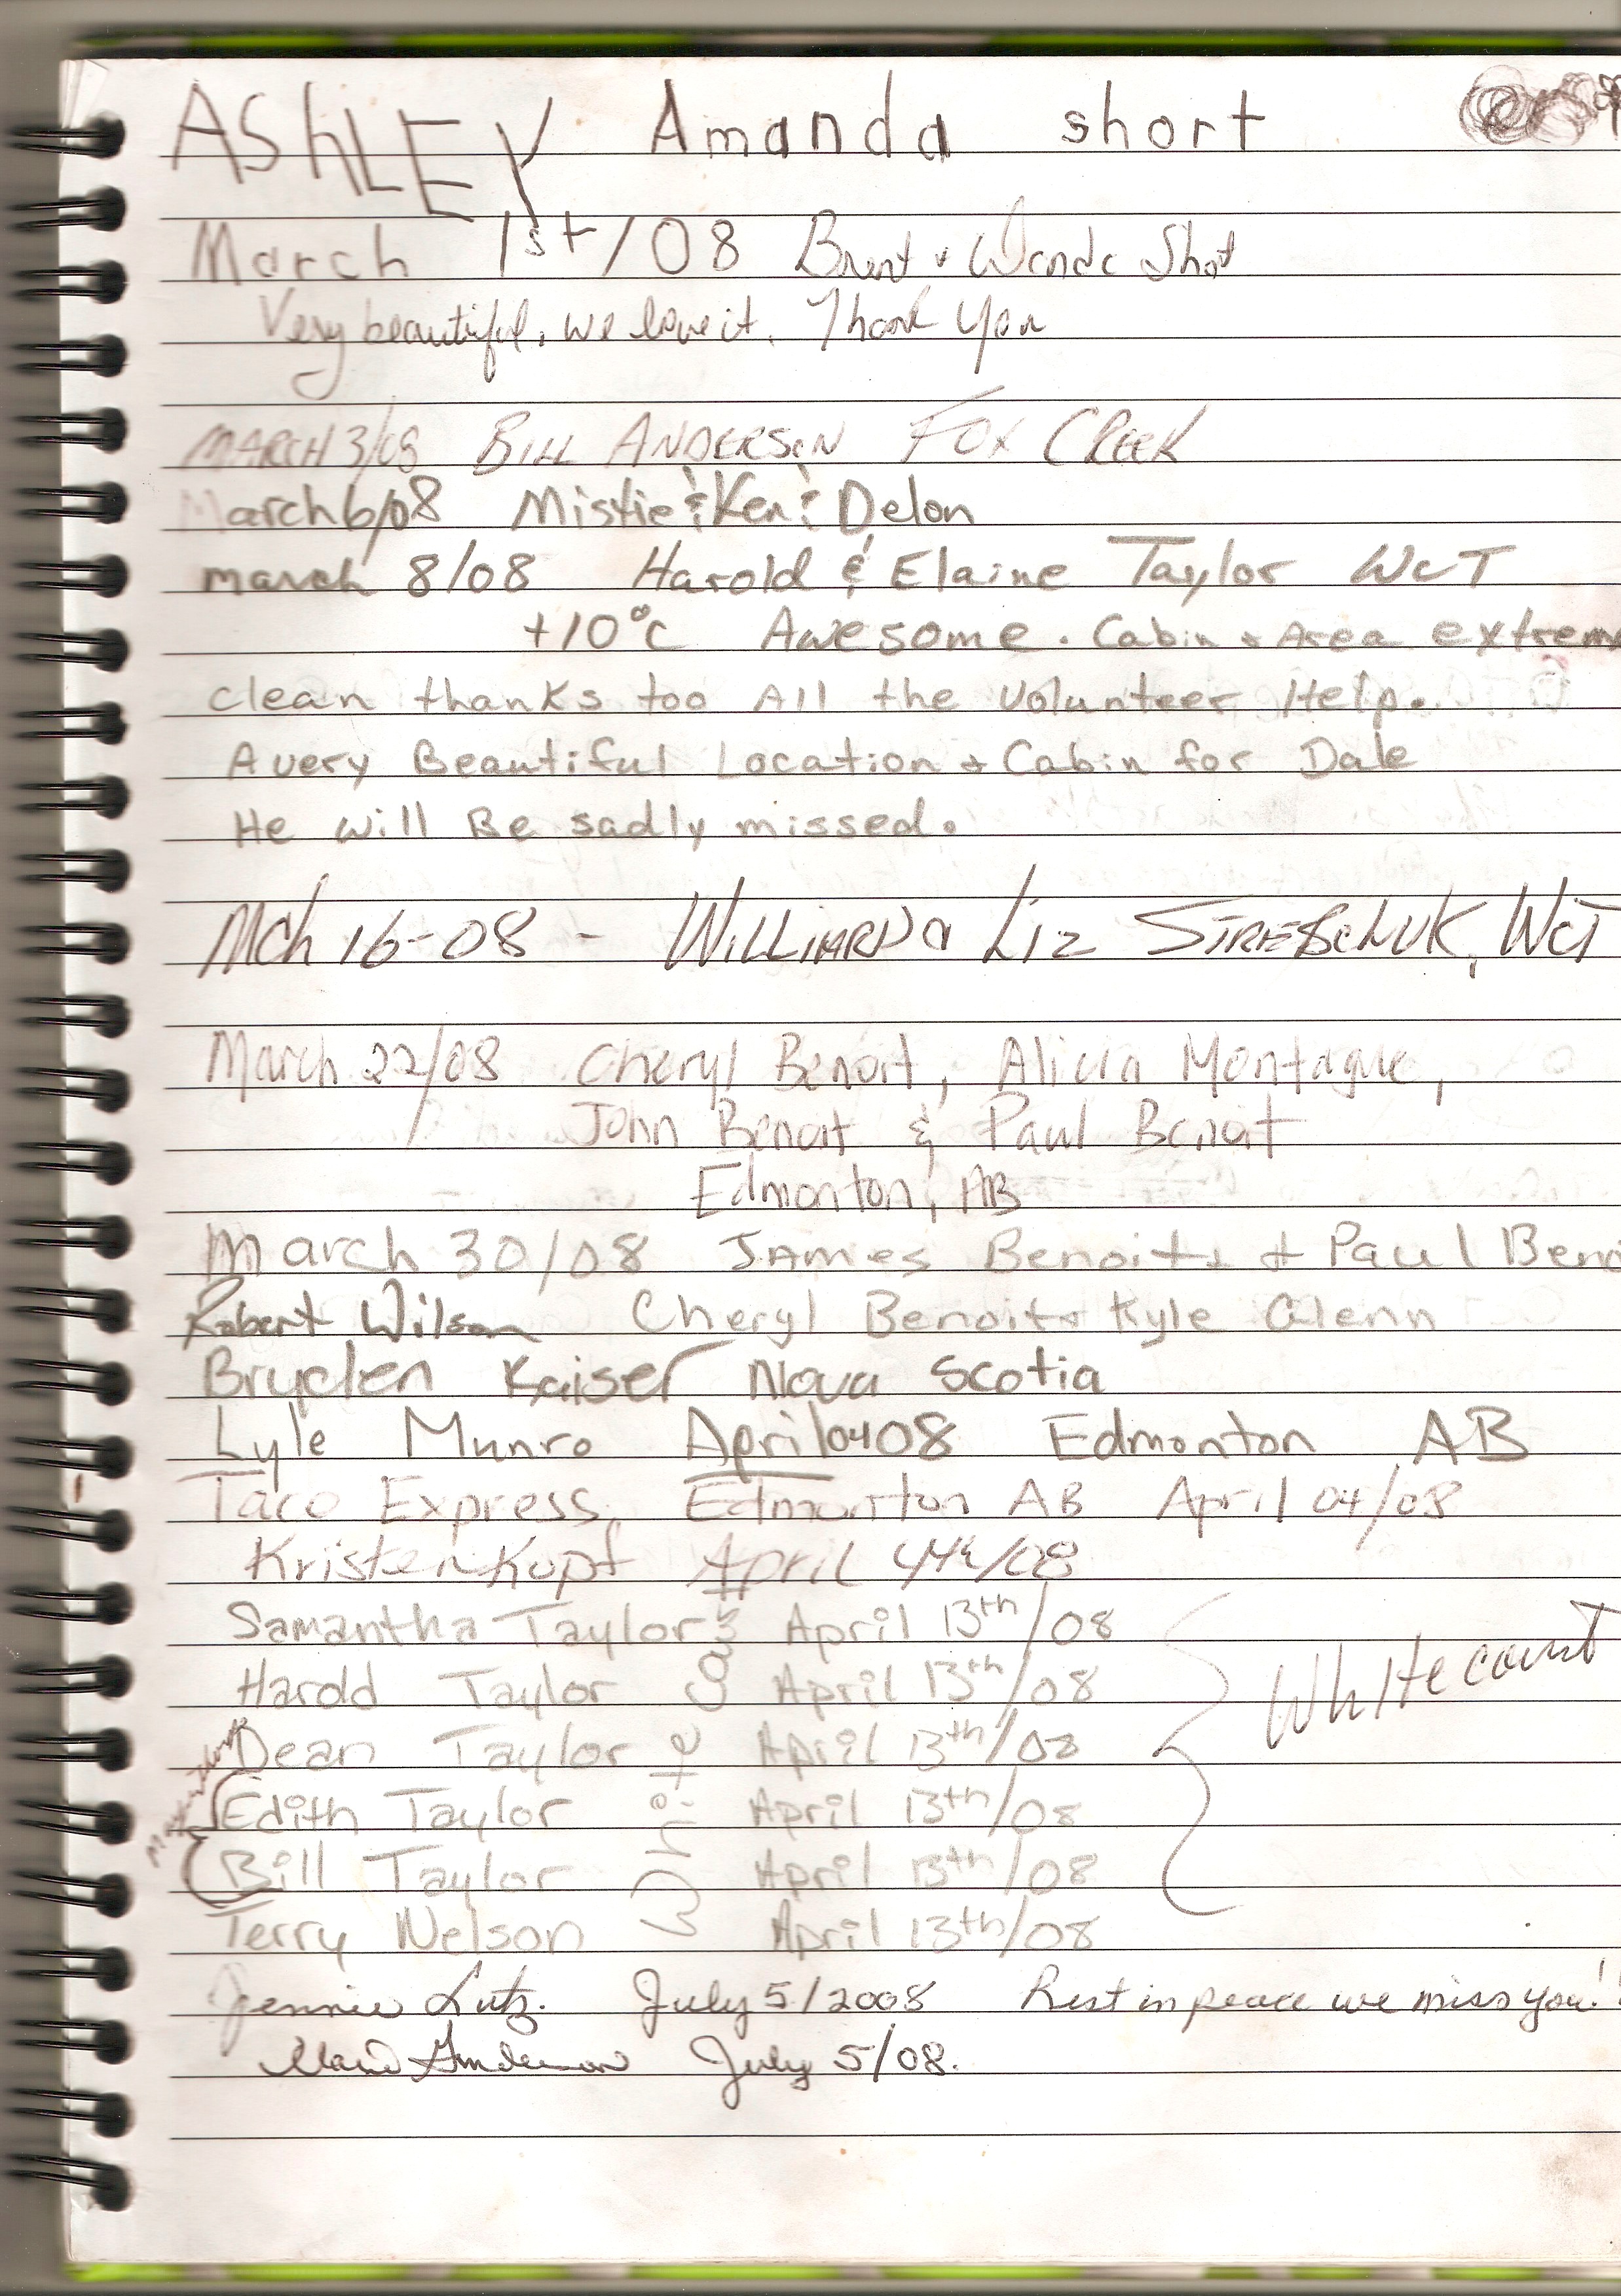 ASHLEY Amanda short
March 1st/08 Brent & Wanda Short
Very beautiful, we love it. Thank You
MARCH 3/08 BILL ANDERSON FOX CREEK
March 6/08 Mistie & Ken & Delon
march 8/08 Harold & Elaine Taylor WCT
+10°C Awesome. Cabin & Area extrem
clean thanks too All the Volunteer Help.
A very Beautiful Location & Cabin for Dale
He will Be sadly missed.
MCh 16-08 - WILLIARD & LIZ STREBCHUK, WCT
March 22/08 Cheryl Benoit, Alicia Montague,
John Benoit & Paul Benoit
Edmonton, AB
March 30/08 JAmes Benoit & Paul Beno
Robert Wilson Cheryl Benoit & Kyle Glenn
Bryden Kaiser Nova Scotia
Lyle Munro April 04 08 Edmonton AB
Taco Express, Edmonton AB April 04/08
Kristen Kopf April 4th/08
Samantha Taylor April 13th/08
Harold Taylor April 13th/08
Whitecourt
Dean Taylor April 13th/08
Edith Taylor April 13th/08
Bill Taylor April 13th/08
Terry Nelson April 13th/08
Jennie Lutz. July 5/2008 Rest in peace we miss you!!
Marie Anderson July 5/08.